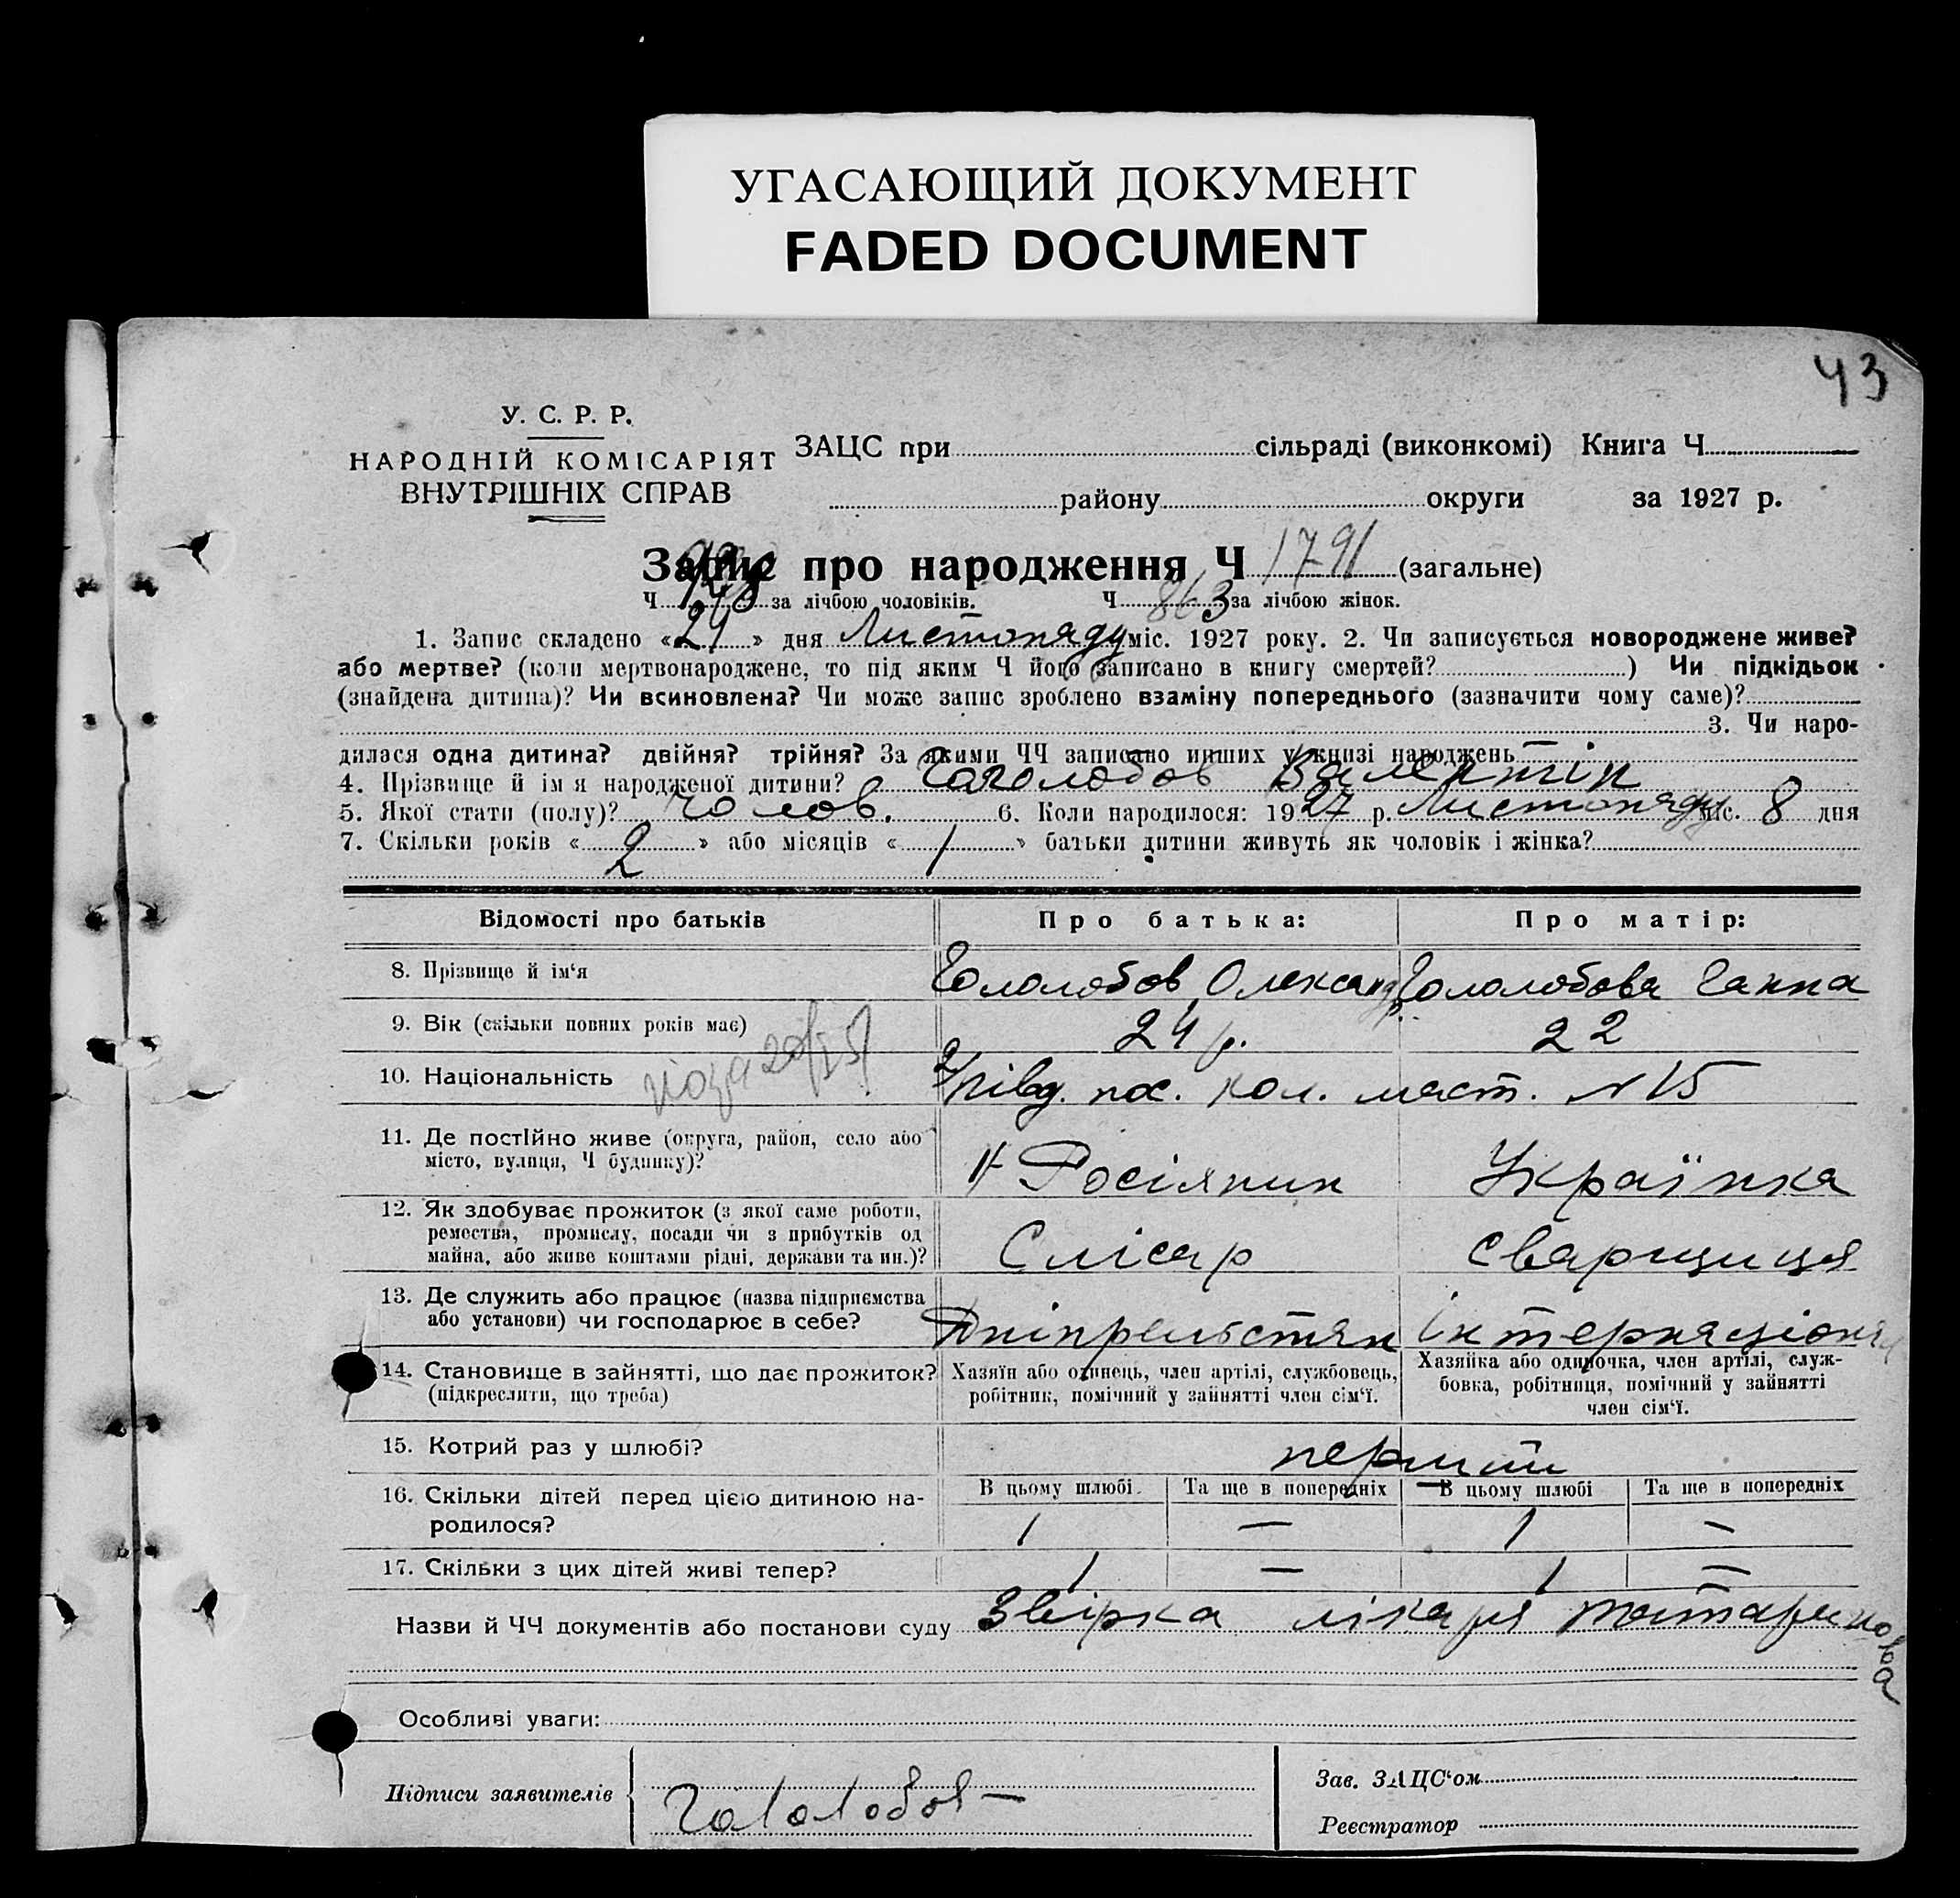 УГАСАЮЩИЙ ДОКУМЕНТ
FADED DOCUMENT
43
У. С. Р. Р.
НАРОДНІЙ КОМІСАРІЯТ
ВНУТРІШНІХ СПРАВ
ЗАЦС при сільраді (виконкомі) Книга Ч
району округи за 1927 р.
Запис про народження Ч 1791 (загальне)
Ч за лічбою чоловіків. Ч 863 за лічбою жінок.
1. Запис складено «24» дня Листопаду міс. 1927 року. 2. Чи записується новороджене живе?
або мертве? (коли мертвонароджене, то під яким Ч його записано в книгу смертей? ) Чи підкідьок
(знайдена дитина)? Чи всиновлена? Чи може запис зроблено взаміну попереднього (зазначити чому саме)?
3. Чи наро-
дилася одна дитина? двійня? трійня? За якими ЧЧ записано инших у книзі народжень —
4. Прізвище й ім я народженої дитини? Гололобов Валентін
5. Якої стати (полу)? чолов. 6. Коли народилося: 1927 р. Листопаду міс. 8 дня
7. Скільки років «2» або місяців «1» батьки дитини живуть як чоловік і жінка?
Відомості про батьків Про батька: Про матір:
8. Прізвище й ім'я Гололобов Олександр Гололобова Ганна
9. Вік (скільки повних років має) 24 р. 22
10. Національність Півд. пос. кол. маст. N 15
11. Де постійно живе (округа, район, село або
місто, вулиця, Ч будинку)? Росіянин Українка
12. Як здобуває прожиток (з якої саме роботи,
ремества, промислу, посади чи з прибутків од
майна, або живе коштами рідні, держави та ин.)? Слісар Сварщиця
13. Де служить або працює (назва підприємства
або установи) чи господарює в себе? Інтернаціонал
14. Становище в зайнятті, що дає прожиток?
(підкреслити, що треба)
Хазяїн або одинець, член артілі, службовець,
робітник, помічний у зайнятті член сім'ї.
Хазяйка або одиночка, член артілі, служ-
бовка, робітниця, помічний у зайнятті
член сім'ї.
15. Котрий раз у шлюбі? перший
16. Скільки дітей перед цією дитиною на-
родилося?
В цьому шлюбі Та ще в попередніх В цьому шлюбі Та ще в попередніх
1 — 1 —
17. Скільки з цих дітей живі тепер? 1 — 1 —
Назви й ЧЧ документів або постанови суду Звірка лікаря Татаринова
Особливі уваги:
Підписи заявителів Гололобов
Зав. ЗАЦС'ом
Реєстратор